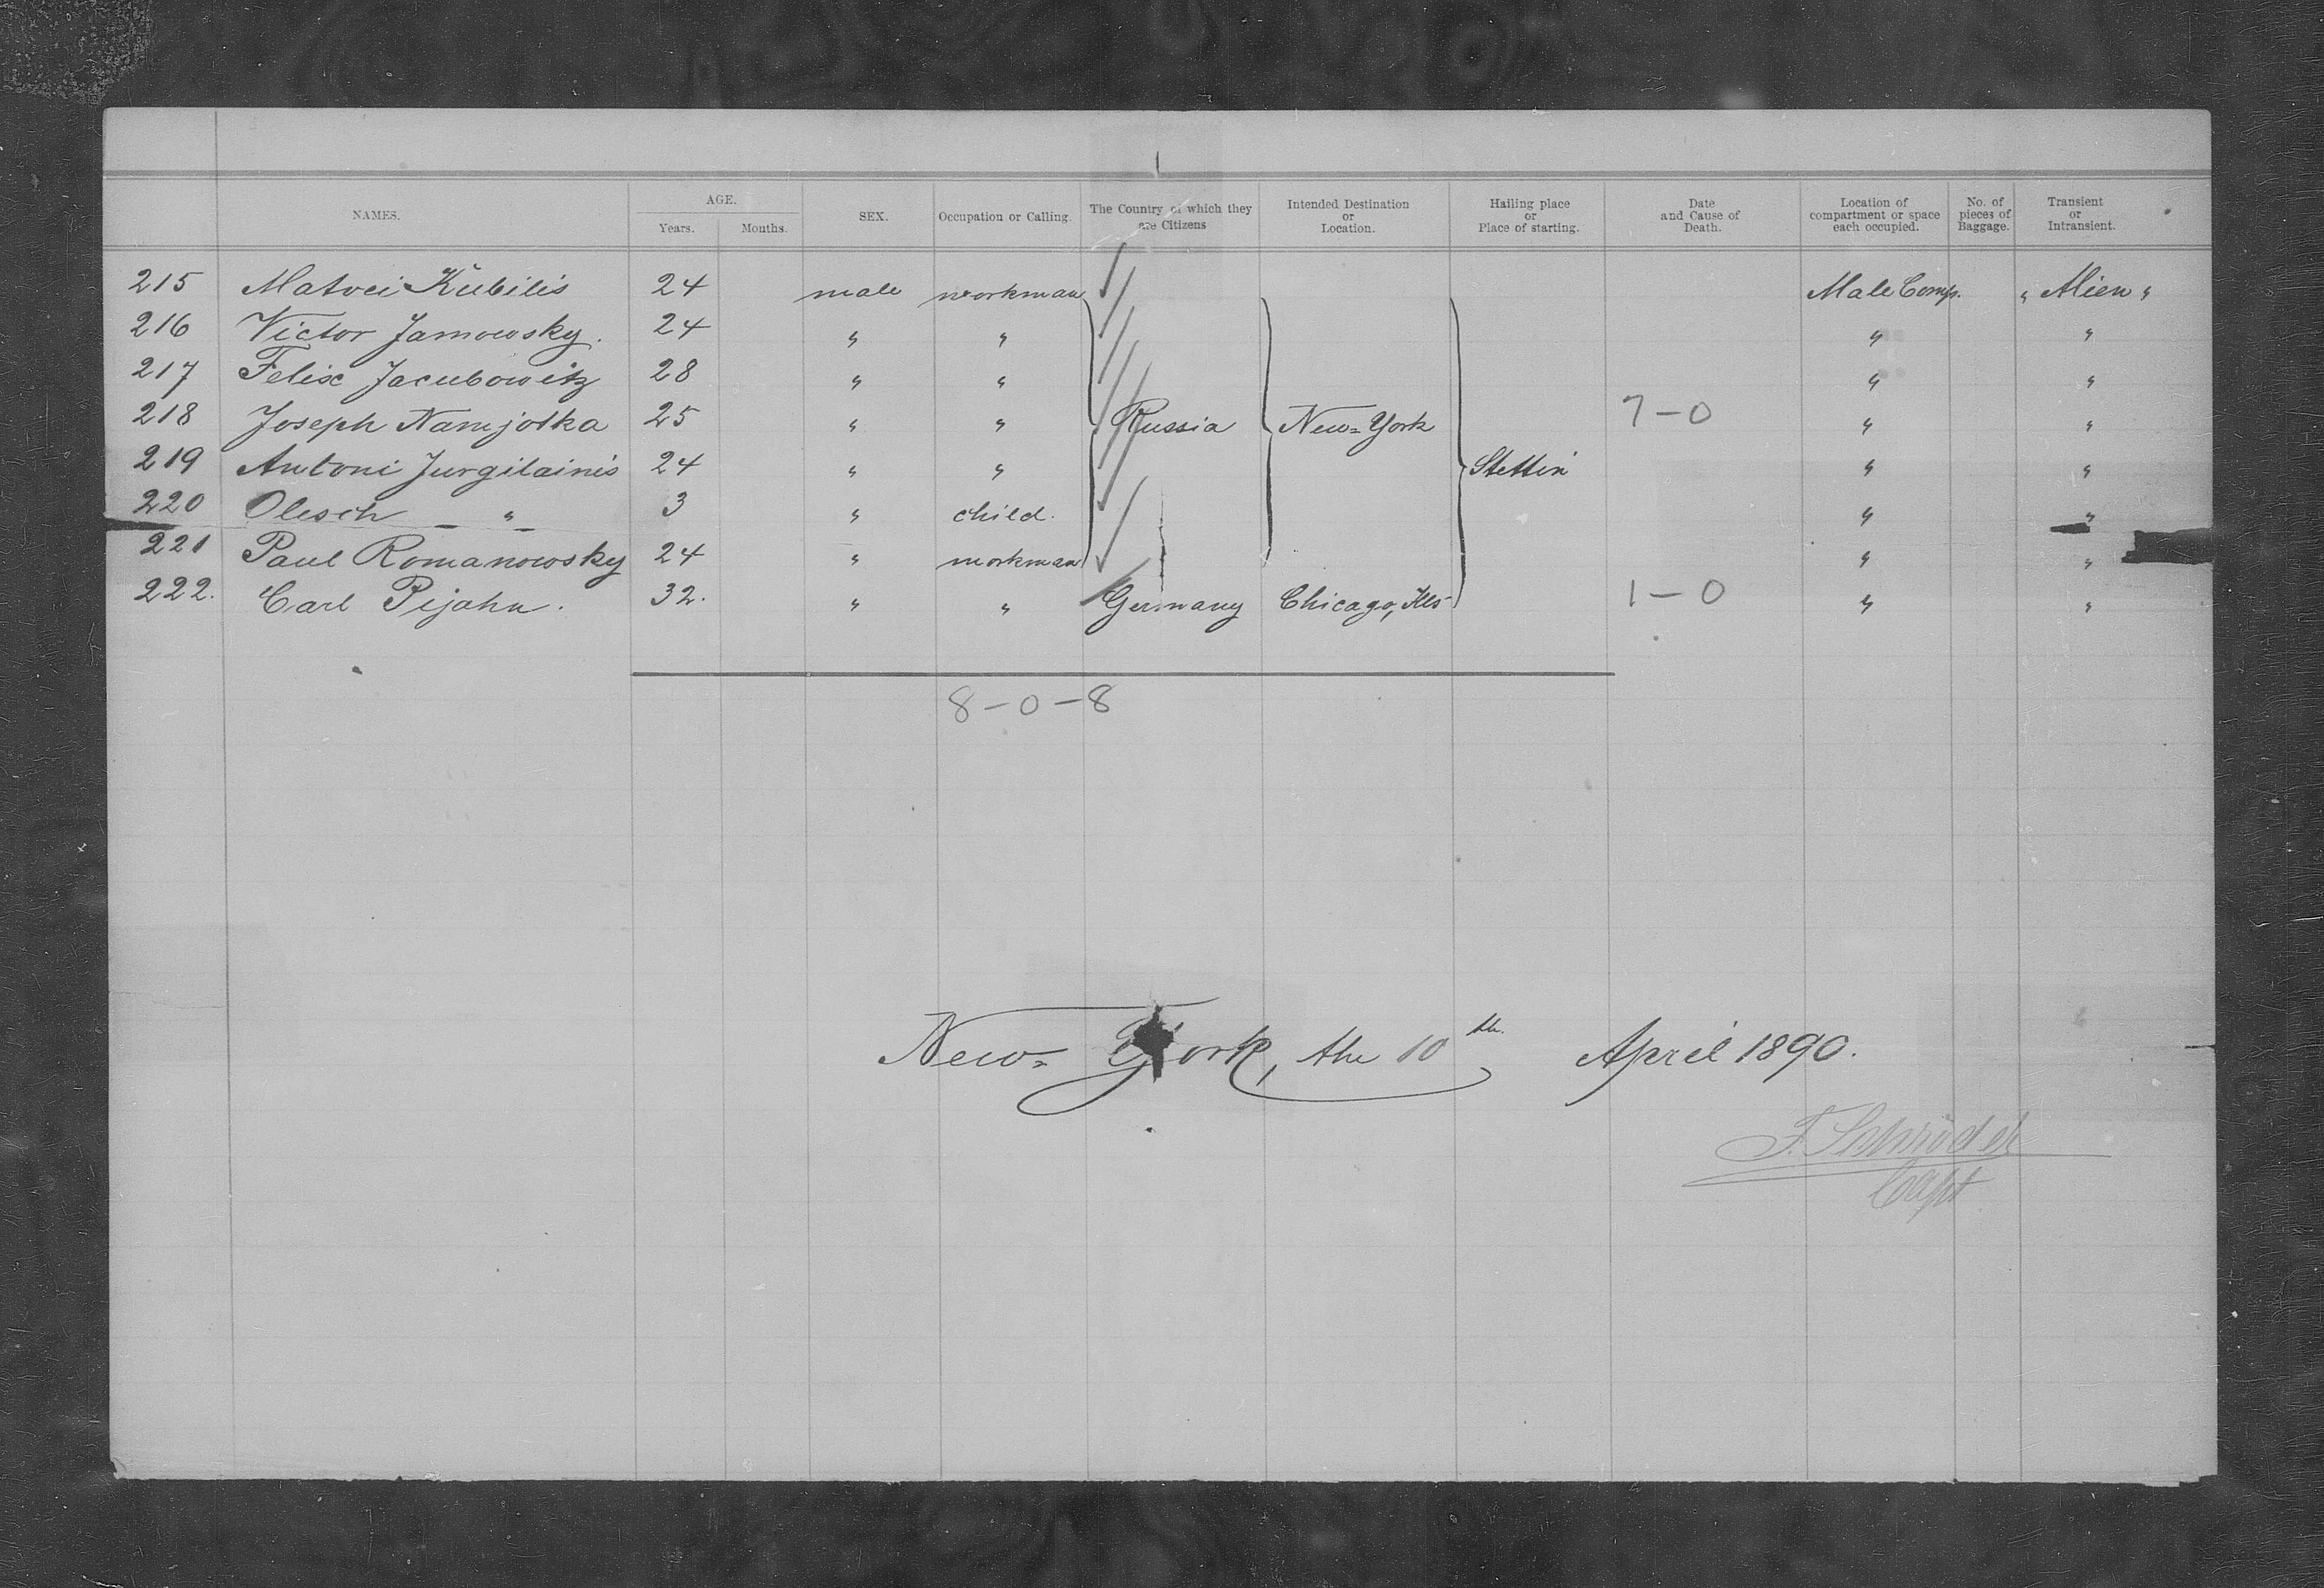 NAMES. AGE. Years. Months. SEX. Occupation or Calling. The Country of which they are Citizens Intended Destination or Location. Hailing place or Place of starting. Date and Cause of Death. Location of compartment or space each occupied. No. of pieces of Baggage. Transient or Intransient.
215 Matvei Kubilis 24 male workman Male Comp. " Alien "
216 Victor Jamowsky. 24 " " " "
217 Felix Jacubowitz 28 " " " "
218 Joseph Namjotka 25 " " Russia New-York 7-0 " "
219 Antoni Jurgilainis 24 " " Stettin " "
220 Olesch " 3 " child. " "
221 Paul Romanowsky 24 " workman " "
222. Carl Pijahn. 32. " " Germany Chicago, Ills 1-0 " "
8-0-8
New-York, the 10th. April 1890.
F. Schröder
Capt